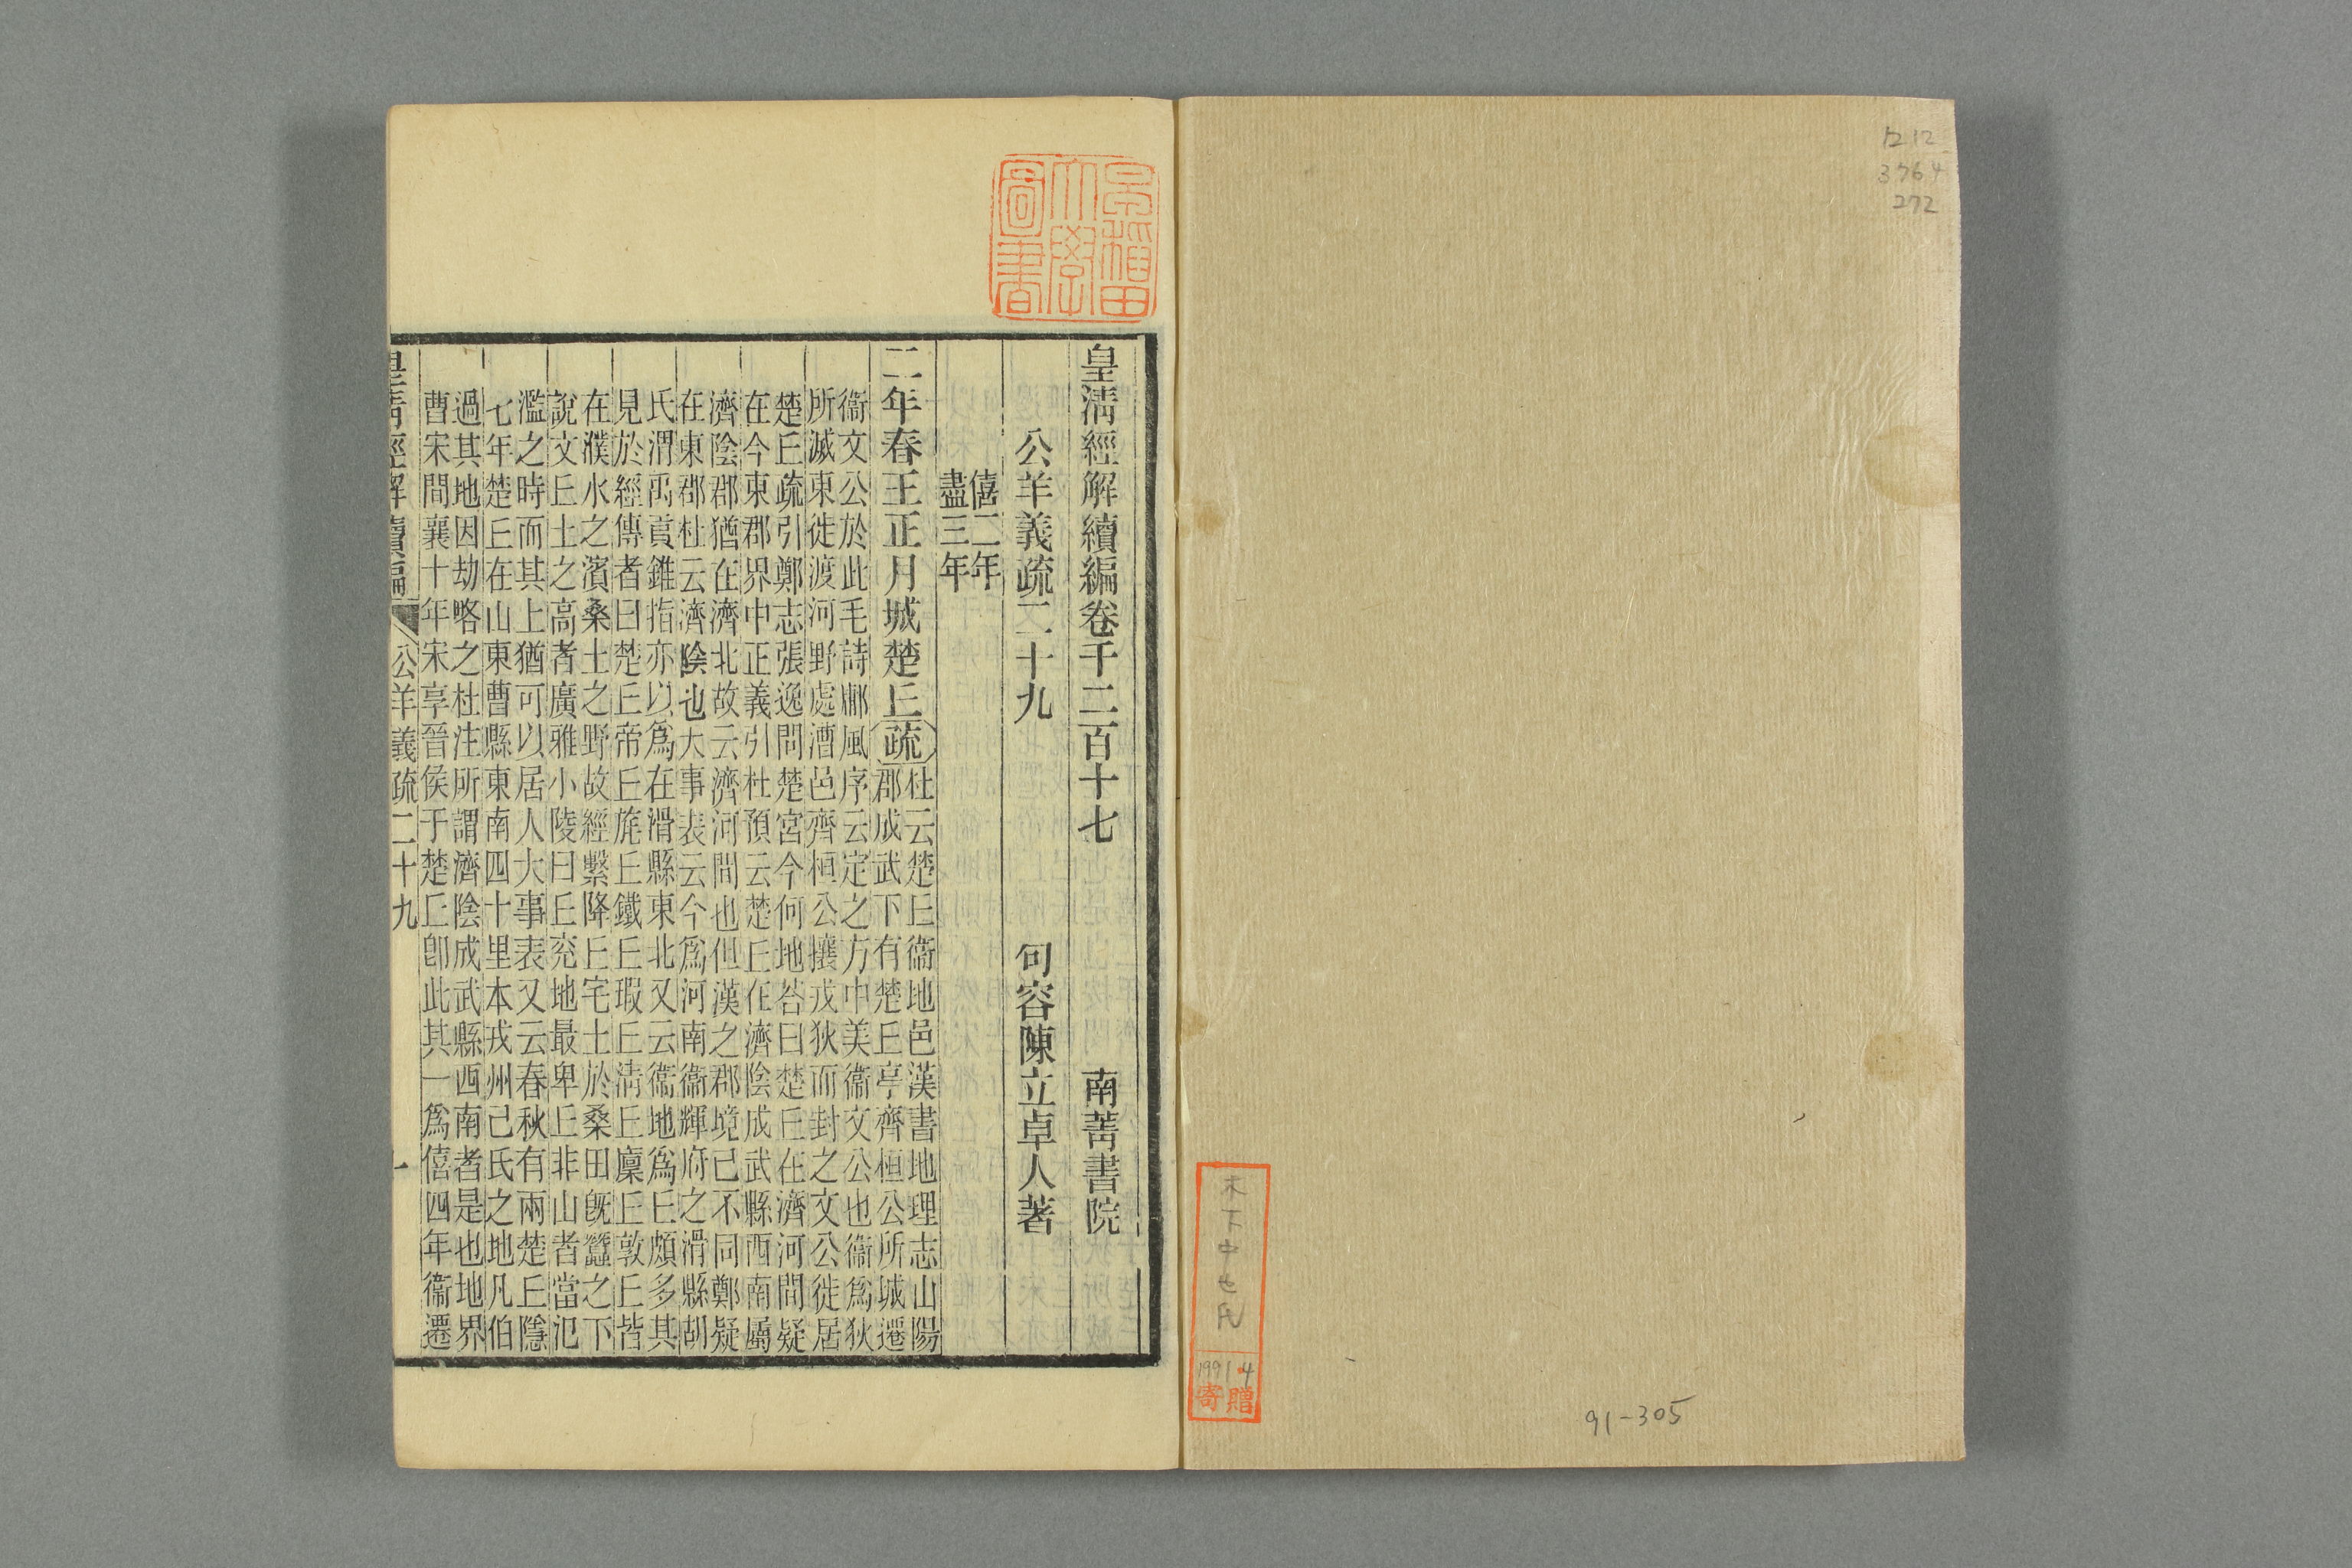 ヱ12
3764
272
木下中也氏
1991.4
寄贈
91-305
早稲田
大學
圖書
皇淸經解續編卷千二百十七
南菁書院
公羊義疏二十九
句容陳立卓人著
僖二年
盡三年
二年春王正月城楚丘疏
杜云楚丘衞地邑漢書地理志山陽
郡成武下有楚丘亭齊桓公所城遷
衞文公於此毛詩鄘風序云定之方中美衞文公也衞爲狄
所滅東徙渡河野處漕邑齊桓公攘戎狄而封之文公徙居
楚丘疏引鄭志張逸問楚宮今何地荅曰楚丘在濟河間疑
在今東郡界中正義引杜預云楚丘在濟陰成武縣西南屬
濟陰郡猶在濟北故云濟河間也但漢之郡境已不同鄭疑
在東郡杜云濟陰也大事表云今爲河南衞輝府之滑縣胡
氏渭禹貢錐指亦以爲在滑縣東北又云衞地爲丘頗多其
見於經傳者曰楚丘帝丘旄丘鐵丘瑕丘淸丘廩丘敦丘皆
在濮水之濱桑土之野故經繫降丘宅土於桑田旣蠶之下
說文丘土之高者廣雅小陵曰丘兖地最卑丘非山者當氾
濫之時而其上猶可以居人大事表又云春秋有兩楚丘隱
七年楚丘在山東曹縣東南四十里本戎州己氏之地凡伯
過其地因劫略之杜注所謂濟陰成武縣西南者是也地界
曹宋間襄十年宋享晉侯于楚丘卽此其一爲僖四年衞遷
皇淸經解續編
公羊義疏二十九
一